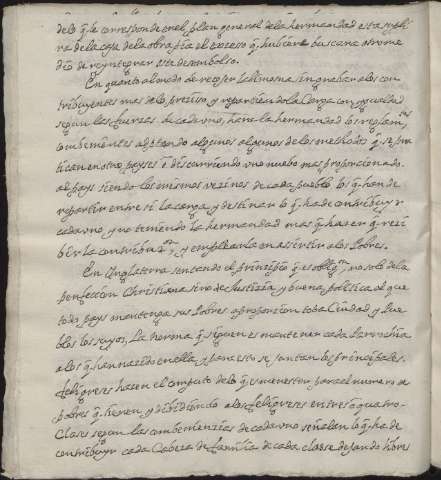 delo q.e le corresponde en el plan general de la hermandad esta supli
ra de la caja de la obra pia el exceso q. hubiere buscara otro me
dio de reyntegrar este desembolso.
En quanto al modo de recoger la limosna sin gravar a los con
tribuyentes mas de lo preciso y repartiendo la Carga con ygualdad
segun las fuerzas de cada uno, hara la hermandad los reglam.tos
combenientes adoptando algunos de los methodos q. se prac
tican en otros payses ò discurriendo uno nuebo mas proporcionado
al pays siendo los mismos vezinos de cada pueblo los q. han de
repartir entre si la carga, y destinar lo q. ha de contribuyr
cada uno y no teniendo la hermandad mas q. hazer q. rezi
bir la contribuz.on, y emplearla en asistir a los Pobres.
En Ynglaterra sentando el principio q. es oblig.on no solo de la
perfeccion Christiana sino de Justizia, y buena politica el que
todo pays mantenga sus Pobres a proporcion toda Ciudad y Pue
blo los suyos, La norma q. siguen es mantener cada Parrochia
a los q. han nazido en ella, y para esto se juntan los principales
feligreses hazen el computo de lo q. es menester para el numero de
pobres q. tienen y dibidiendo a los feligreses en tres o quatro
Clases segun las combenienzias de cada uno señalan lo q. ha de
contribuyr cada Cabeza de familia de cada clase dejando libres